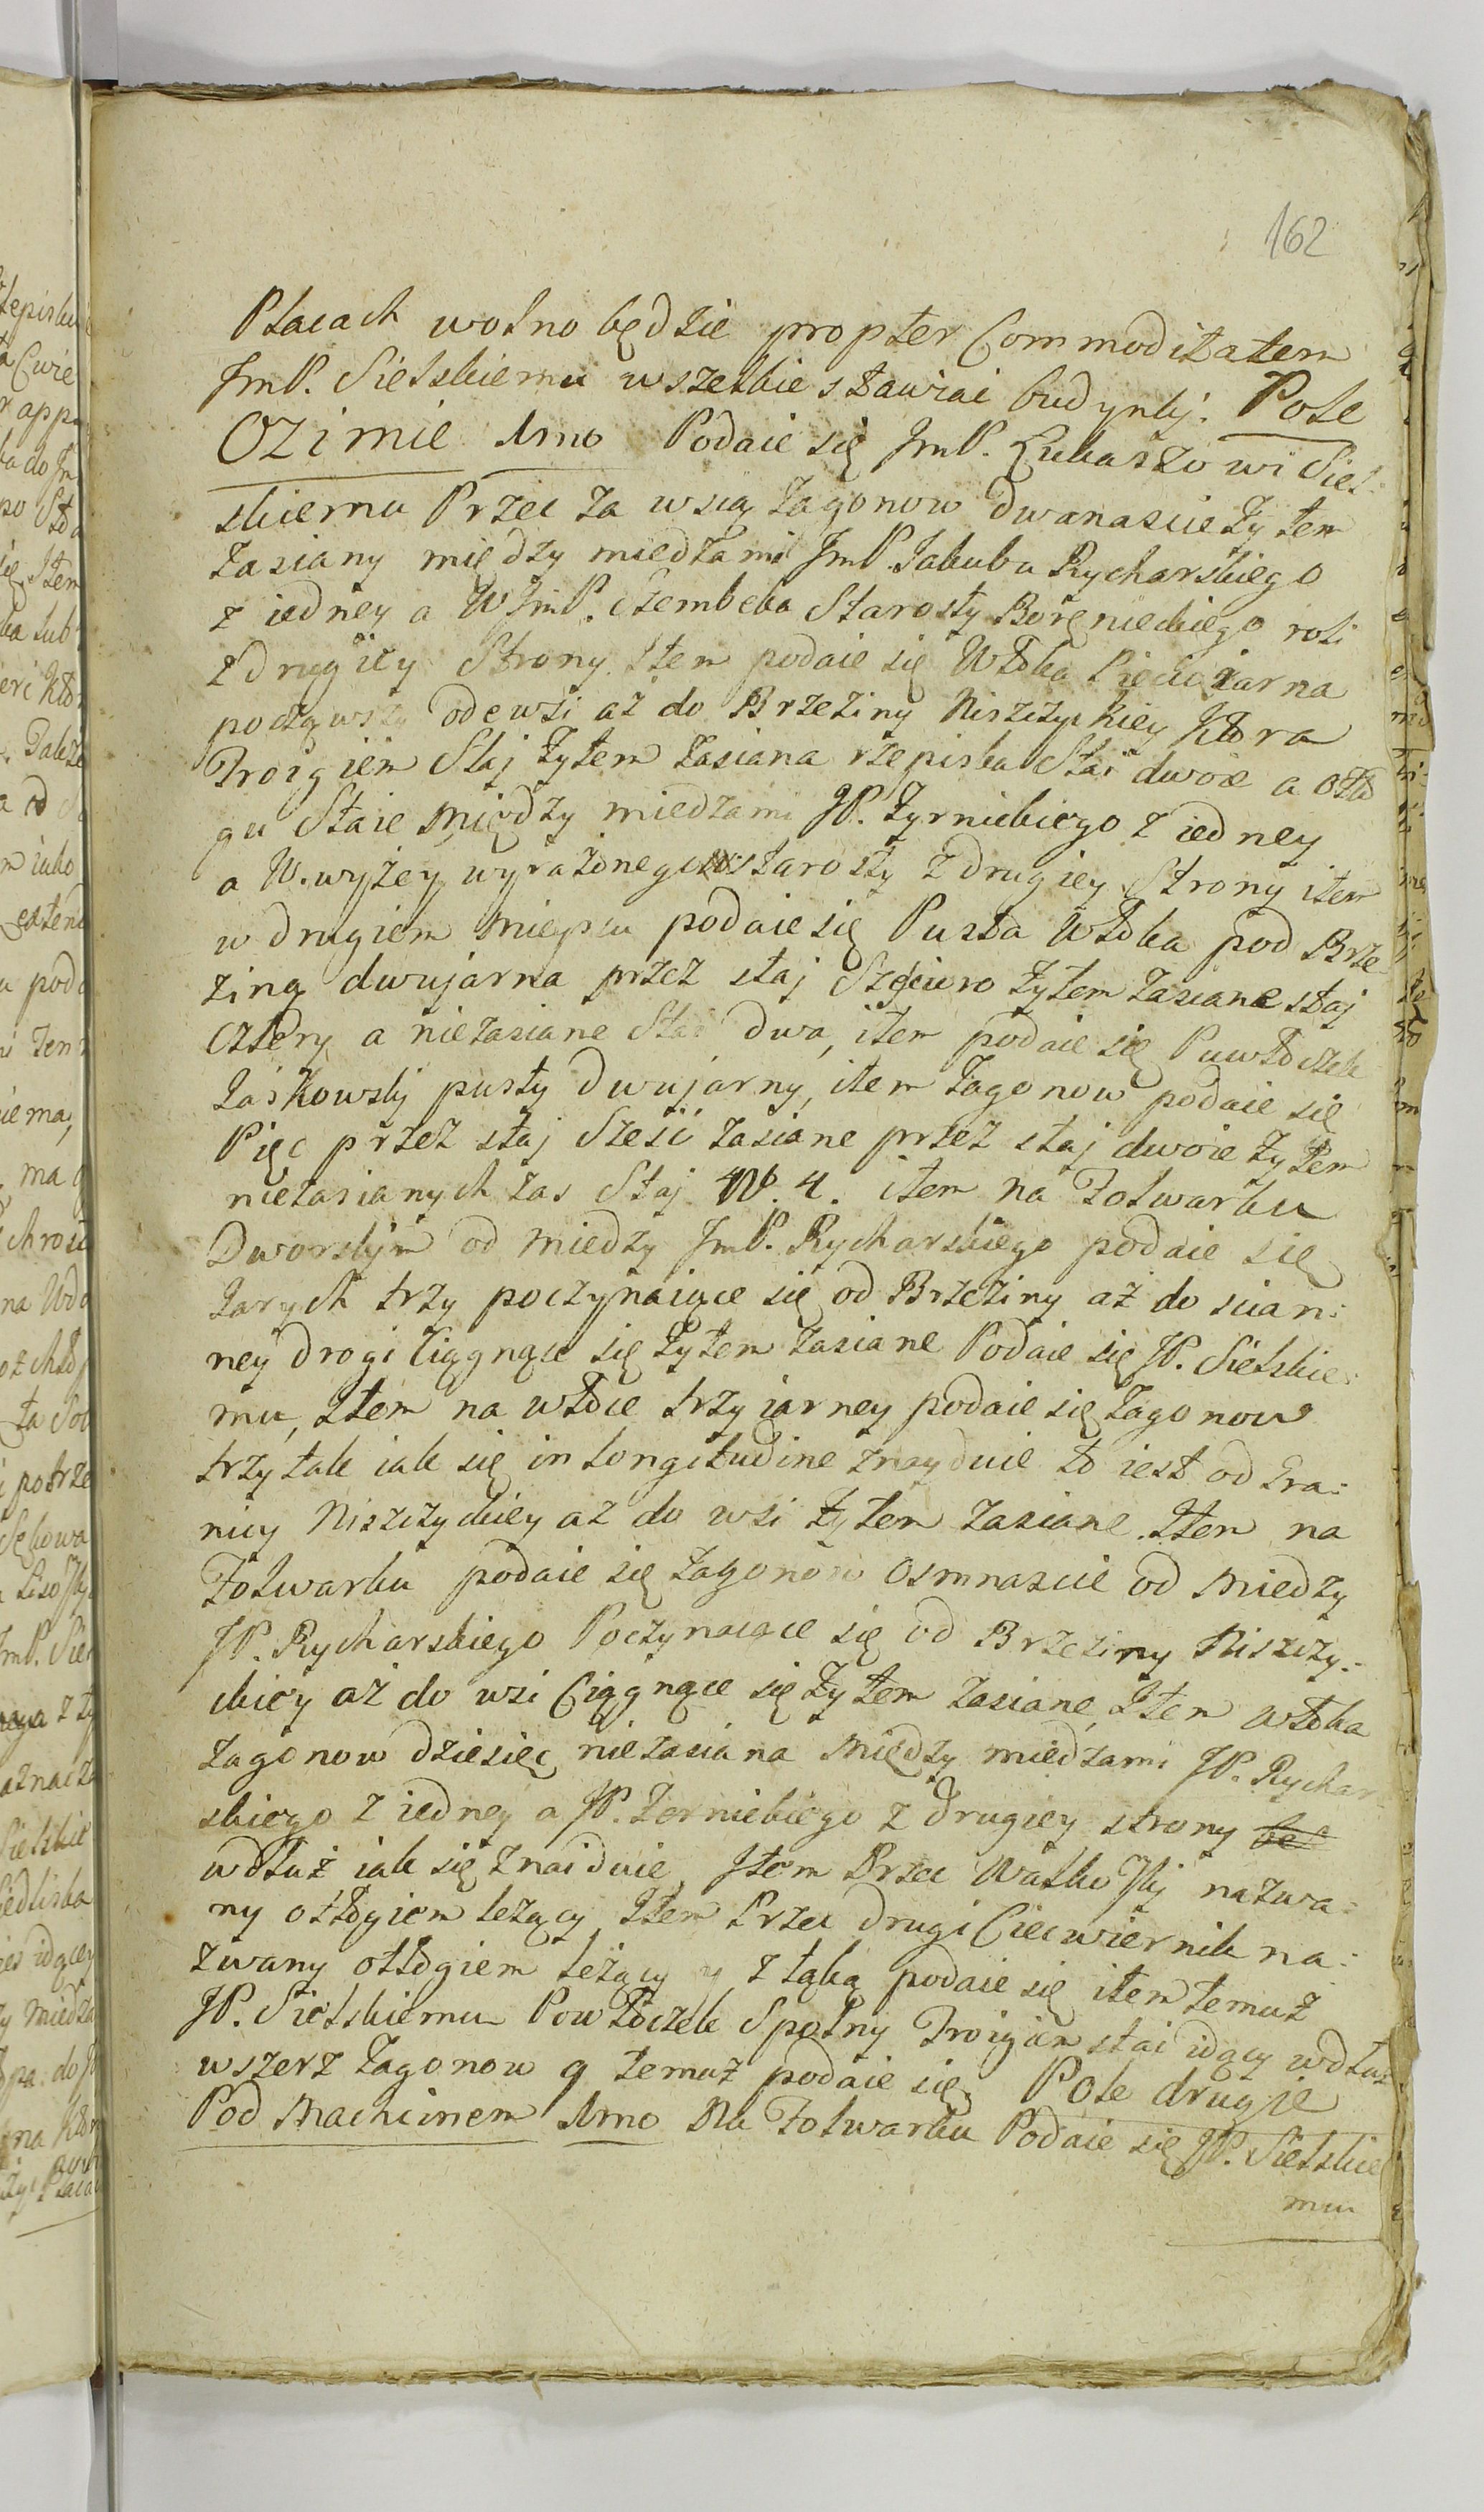 162
Placach wolno będzie propter Commoditatem
JmP. Sielskiemu wszelkie stawiac budynkj. Pole
Ozimie 1mo Podaie się JmP. Łukaszowi Siel:
skiemu Przec za wsią Zagonow dwanascie Zytem
Zasiany między miedzami JmP. Jakuba Rycharskiego
z iedney a WJmP. Szembeka Starosty roli
z drugiey Strony. Item podaie się Włoka
począwszy ode wsi aż do Brzeziny Niszczyckiey Która
Troigiem Staj Zytem Zasiana rzepiska Stai dwoie a odło
gu Staie między miedzami JP. Zyrnickiego z iedney
a W. wyżey wyrażonego Starosty z drugiey Strony item
w drugiem mieyscu podaie się Pusta Włoka pod Brze
ziną dwujarna przez staj Szescioro Zytem Zasiane staj
cztery a niezasiane Stai dwa, item podaie się Puwłoczek
Laskowskj pusty dwujarny, item Zagonow podaie się
Pięc przez staj Sześć zasiane przez staj dwoie Zytem
niezasianych zas Staj N. 4. item na Folwarku
Dworskjm od miedzy JmP. Rycharskiego podaie się
Jarych trzy poczynaiące się od Brzeziny aż do scian:
ney drogi Ciągnące się Zytem Zasiane Podaie się JP. Sielskie:
mu, Item na włoce trzy jarney podaie się Zagonow
trzy tak iak się in longitudine znayduie to iest od Gra:
nicy Niszczyckiey az do wsi Zytem zasiane. Item na
Folwarku podaie się zagonow Osmnascie od miedzy
JP. Rycharskiego Poczynaiące się od Brzeziny Niszczy:
ckiey aż do wsi Ciągnące się Zytem zasiane, Item włoka
Zagonow dziesięć niezasiana między miedzami JP. Rychar
skiego z iedney a JP. Zernickiego z drugiey strony
wdłuż iak się znaiduie, Item Przec Walkoskj nazwa:
ny odłogiem leżący, Item Przec drugi Ciecwiernik na:
zwany odłogiem leżący y z łąką podaie się item temuż
JP. Sielskiemu Powłoczek Spolny Troigiem stai idący wdłuż
wszerz Zagonow 9 temuż podaie się. Pole drugie
Pod Machcinem 1mo Na Folwarku Podaie się JP. Sielskie
mu